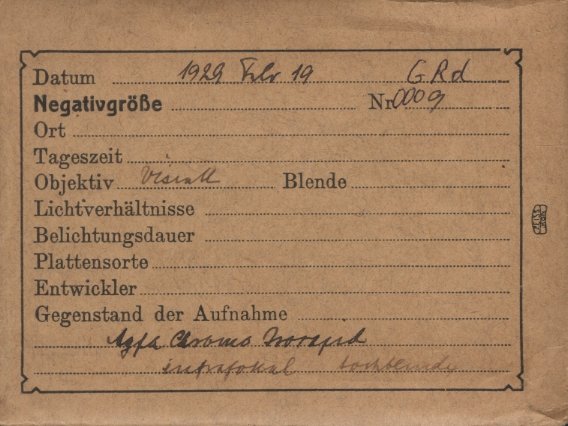 Datum 1929 Febr 19 G.Rd
Negativgröße Nr 0009
Ort
Tageszeit
Objektiv visuell Blende
Lichtverhältnisse
Belichtungsdauer
Plattensorte
Entwickler
Gegenstand der Aufnahme
Agfa Chromo Isorapid
intrafokal